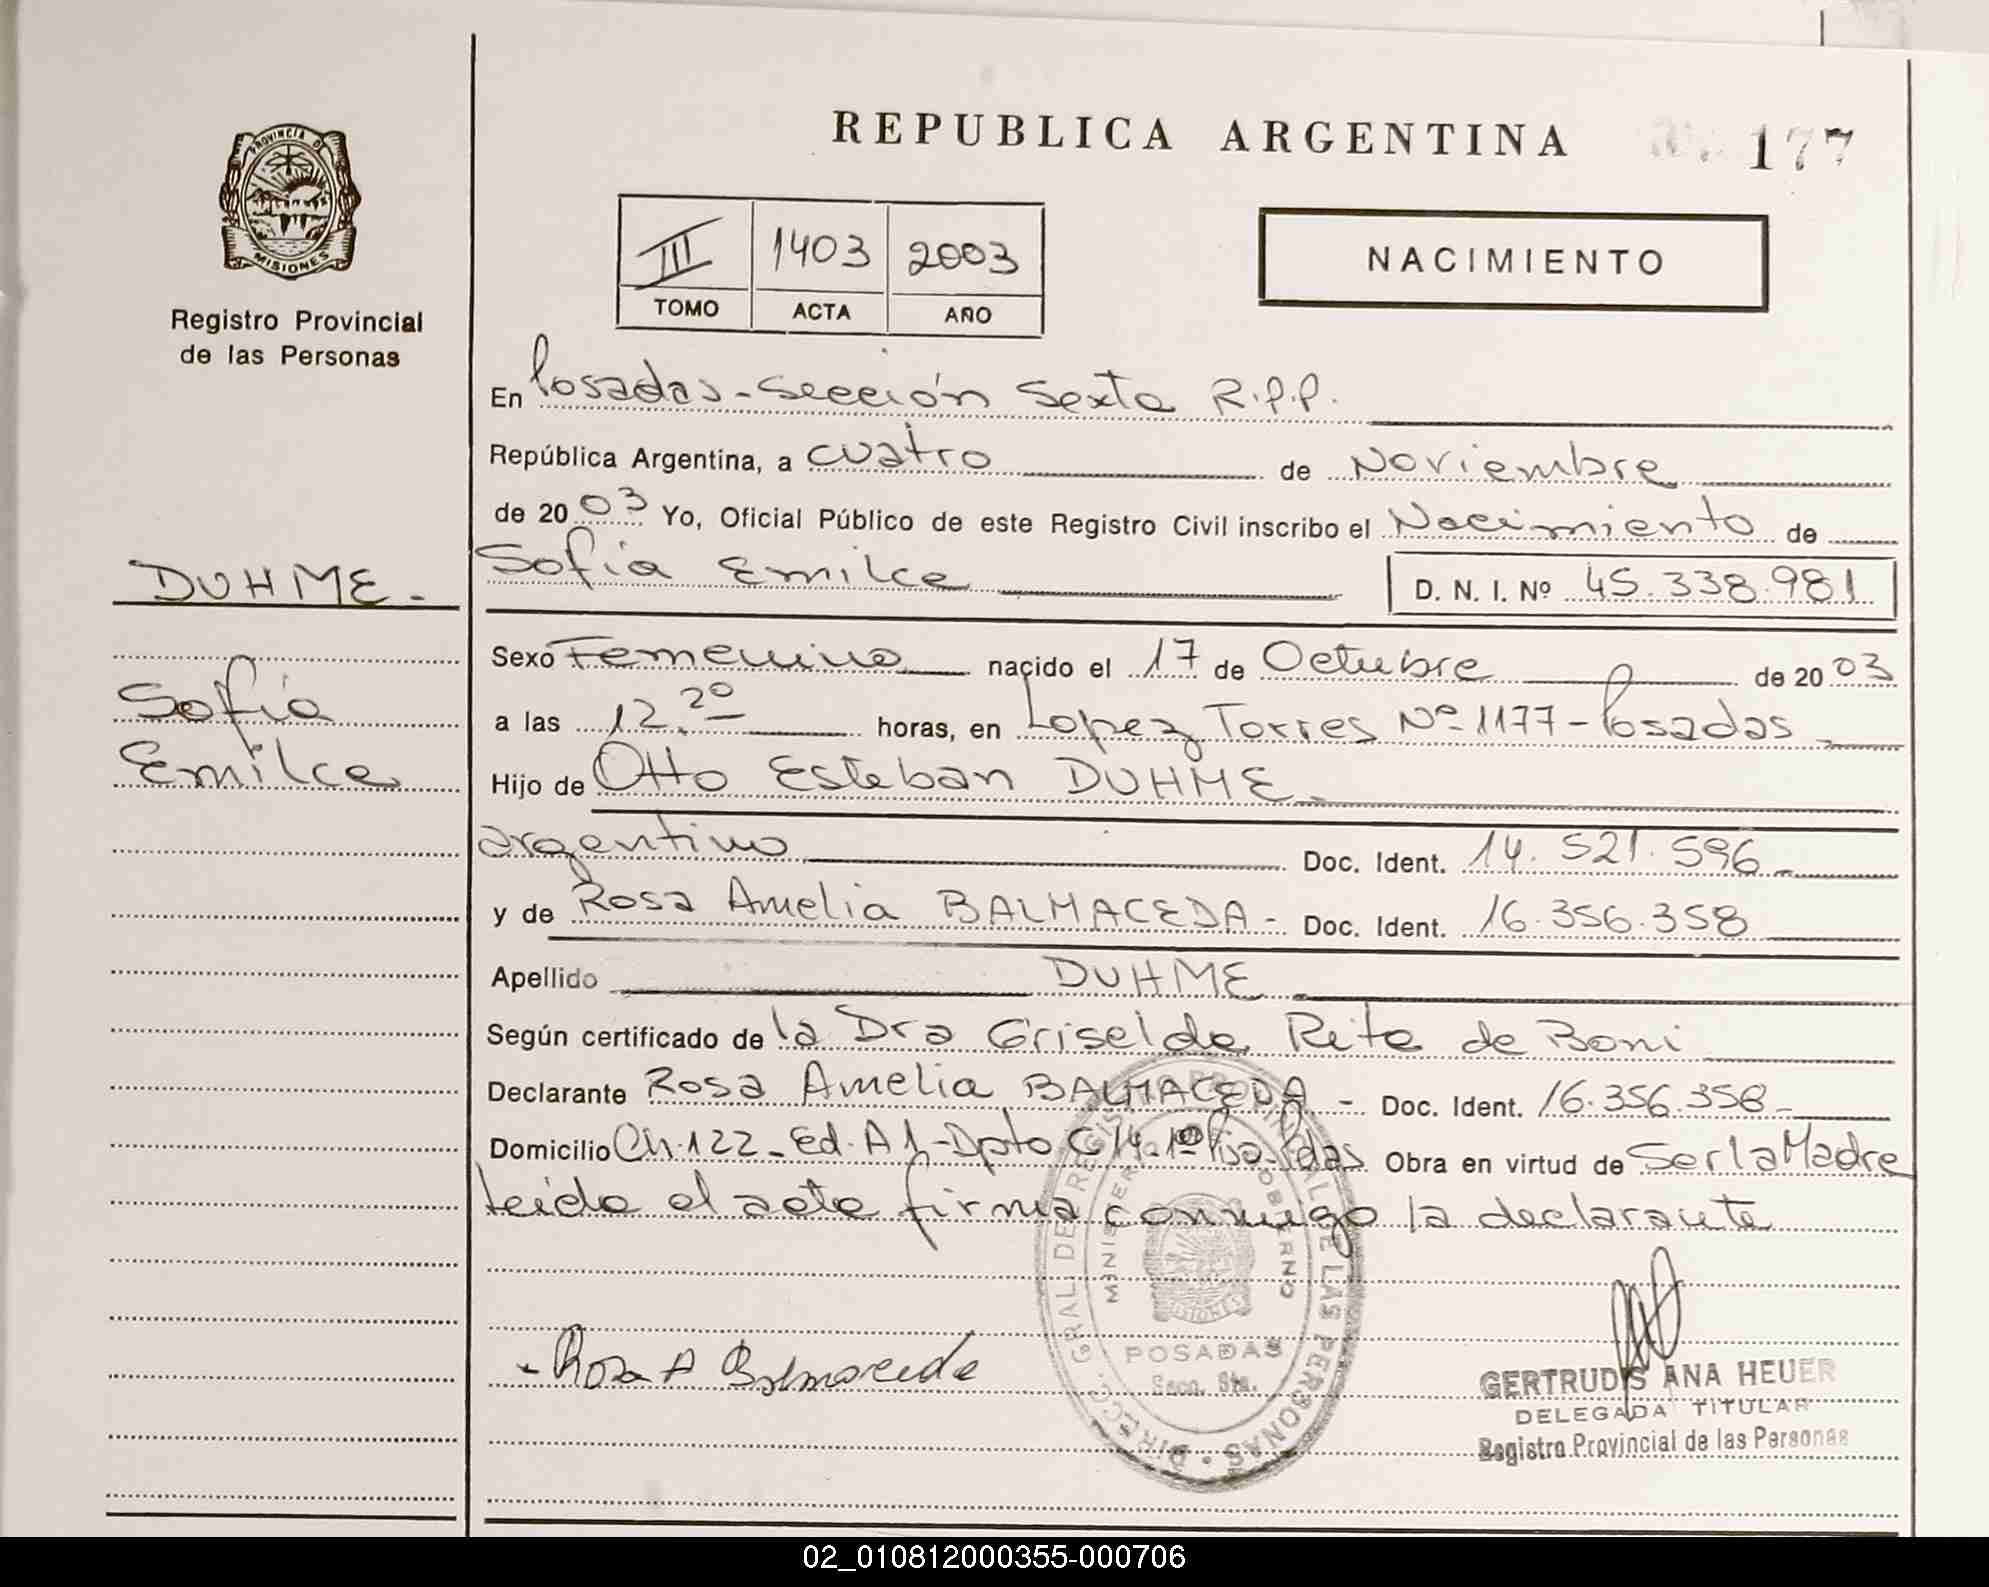 REPUBLICA ARGENTINA
177
PROVINCIA D
MISIONES
Registro Provincial
de las Personas
III 1403 2003
TOMO ACTA AÑO
NACIMIENTO
En Posadas-Sección Sexta R.P.P.
República Argentina, a cuatro de Noviembre
de 2003 Yo, Oficial Público de este Registro Civil inscribo el Nacimiento de
DUHME.
Sofía Emilce D. N. I. Nº 45.338.981
Sexo Femenino nacido el 17 de Octubre de 2003
Sofía
a las 12.20 horas, en Lopez Torres Nº 1177-Posadas
Emilce
Hijo de Otto Esteban DUHME
argentino Doc. Ident. 14.521.596
y de Rosa Amelia BALMACEDA- Doc. Ident. 16.356.358
Apellido DUHME
Según certificado de la Dra Griselda Rita de Boni
Declarante Rosa Amelia BALMACEDA - Doc. Ident. 16.356.358
Domicilio Ch.122-Ed.A1-Dpto C 14-1º Piso-Pdas Obra en virtud de Ser la Madre
Leida el acta firma conmigo la declarante
DIRECC. GRAL DEL REGISTRO PROVINCIAL DE LAS PERSONAS
MINISTERIO GOBIERNO
MISIONES
POSADAS
Secc. 6ta.
Rosa A Balmaceda
GERTRUDIS ANA HEUER
DELEGADA TITULAR
Registro Provincial de las Personas
02_010812000355-000706